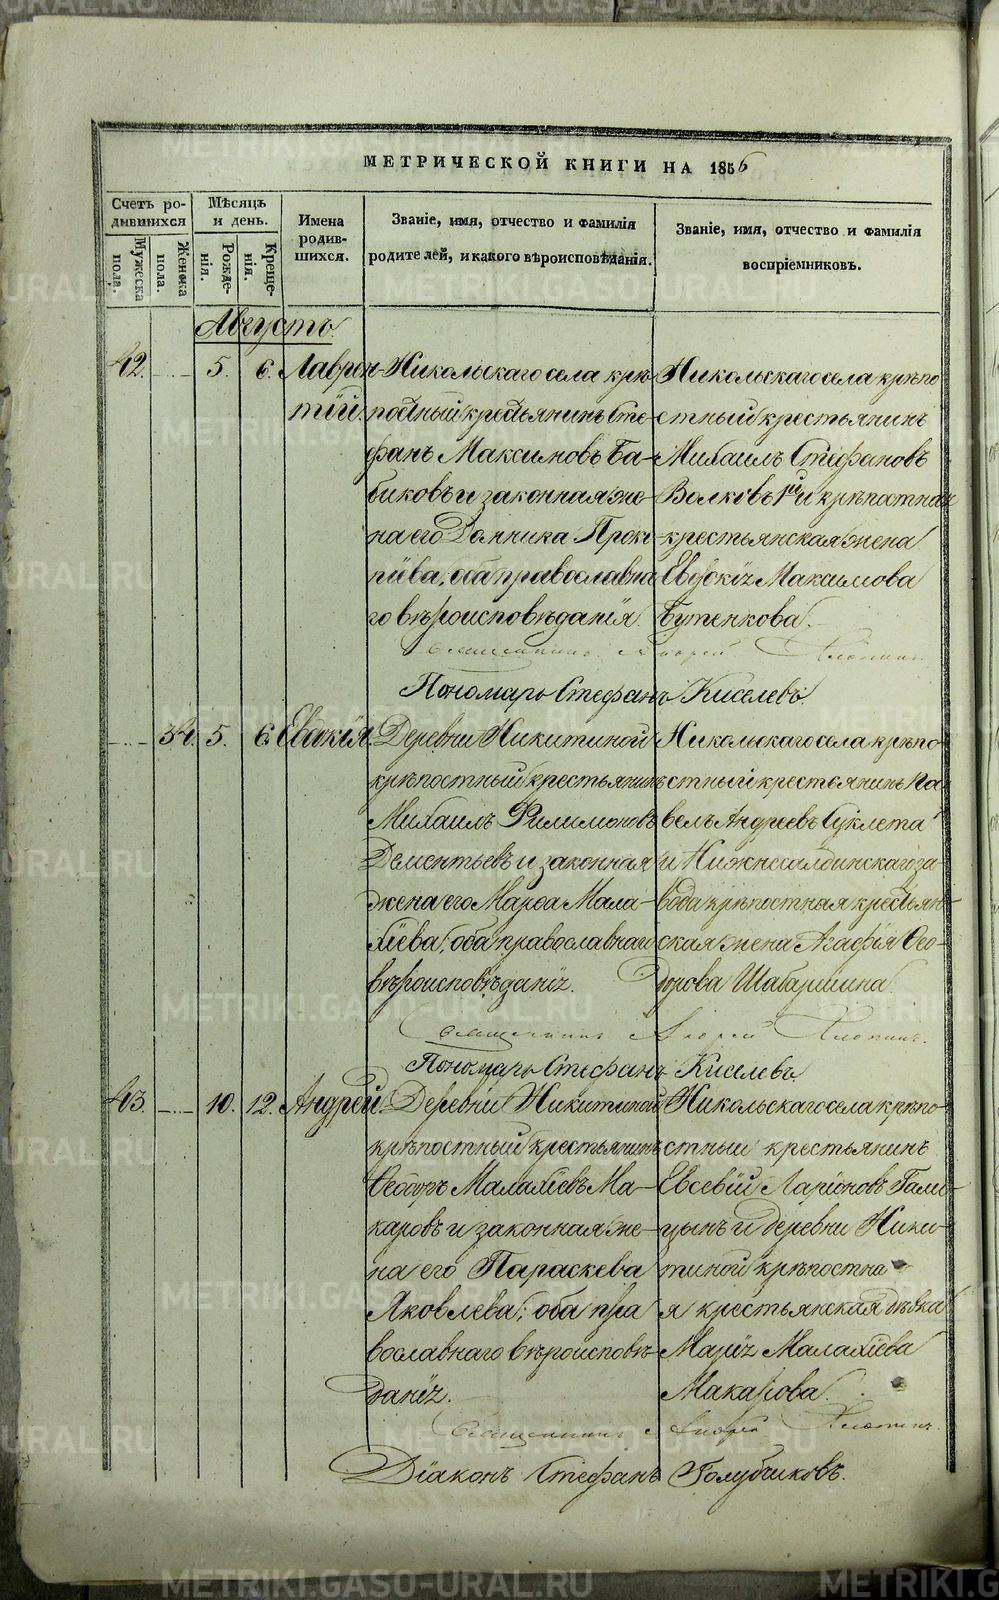 МЕТРИЧЕСКОЙ КНИГИ НА 1856
Счетъ ро-
дившихся
Мужеска
пола.
Женска
пола.
Мѣсяцъ
и день.
Рожде-
нія.
Креще-
нія.
Имена
родив-
шихся.
Званіе, имя, отчество и фамилія
родителей, и какого вѣроисповѣданія.
Званіе, имя, отчество и фамилія
воспріемниковъ.
Августъ
42. 5. 6. Лаврен-
тій.
Никольскаго села крѣ-
постный крестьянинъ Сте-
фанъ Максимовъ Ба-
биковъ и законная же-
на его Домника Прок-
піева, оба православна
го вѣроисповѣданія.
Никольскаго села крѣпо
стный крестьянинъ
Михаилъ Стефановъ
Волковъ 1й и крѣпостная
крестьянская жена
Евдокія Максимова
Бутенкова.
Священникъ Андрей
Пономарь Стефанъ Киселевъ.
34. 5. 6. Евдокія.
Деревни Никитиной
крѣпостный крестьянинъ
Михаилъ Филимоновъ
Дементьевъ и законная
жена его Марѳа Мала-
хіева, оба православнаго
вѣроисповѣданія.
Никольскаго села крѣпо
стный крестьянинъ Па
велъ Андреевъ
и Нижнесалдинскаго за
вода крѣпостная крестьян-
ская жена Агафія Ѳео-
дорова Шабаршина.
Священникъ Андрей
Пономарь Стефанъ Киселевъ
43. 10. 12. Андрей.
Деревни Никитиной
крѣпостный крестьянинъ
Ѳеодоръ Малахіевъ Ма-
каровъ и законная же-
на его Параскева
Яковлева; оба пра
вославнаго вѣроисповѣ-
данія.
Никольскаго села крѣпо
стный крестьянинъ
Евсевій Ларіоновъ Гали-
цынъ и деревни Ники-
тиной крѣпостна
я крестьянская дѣвка
Марія Малахіева
Макарова.
Священникъ Андрей
Діаконъ Стефанъ Голубчиковъ.
METRIKI.GASO-URAL.RU